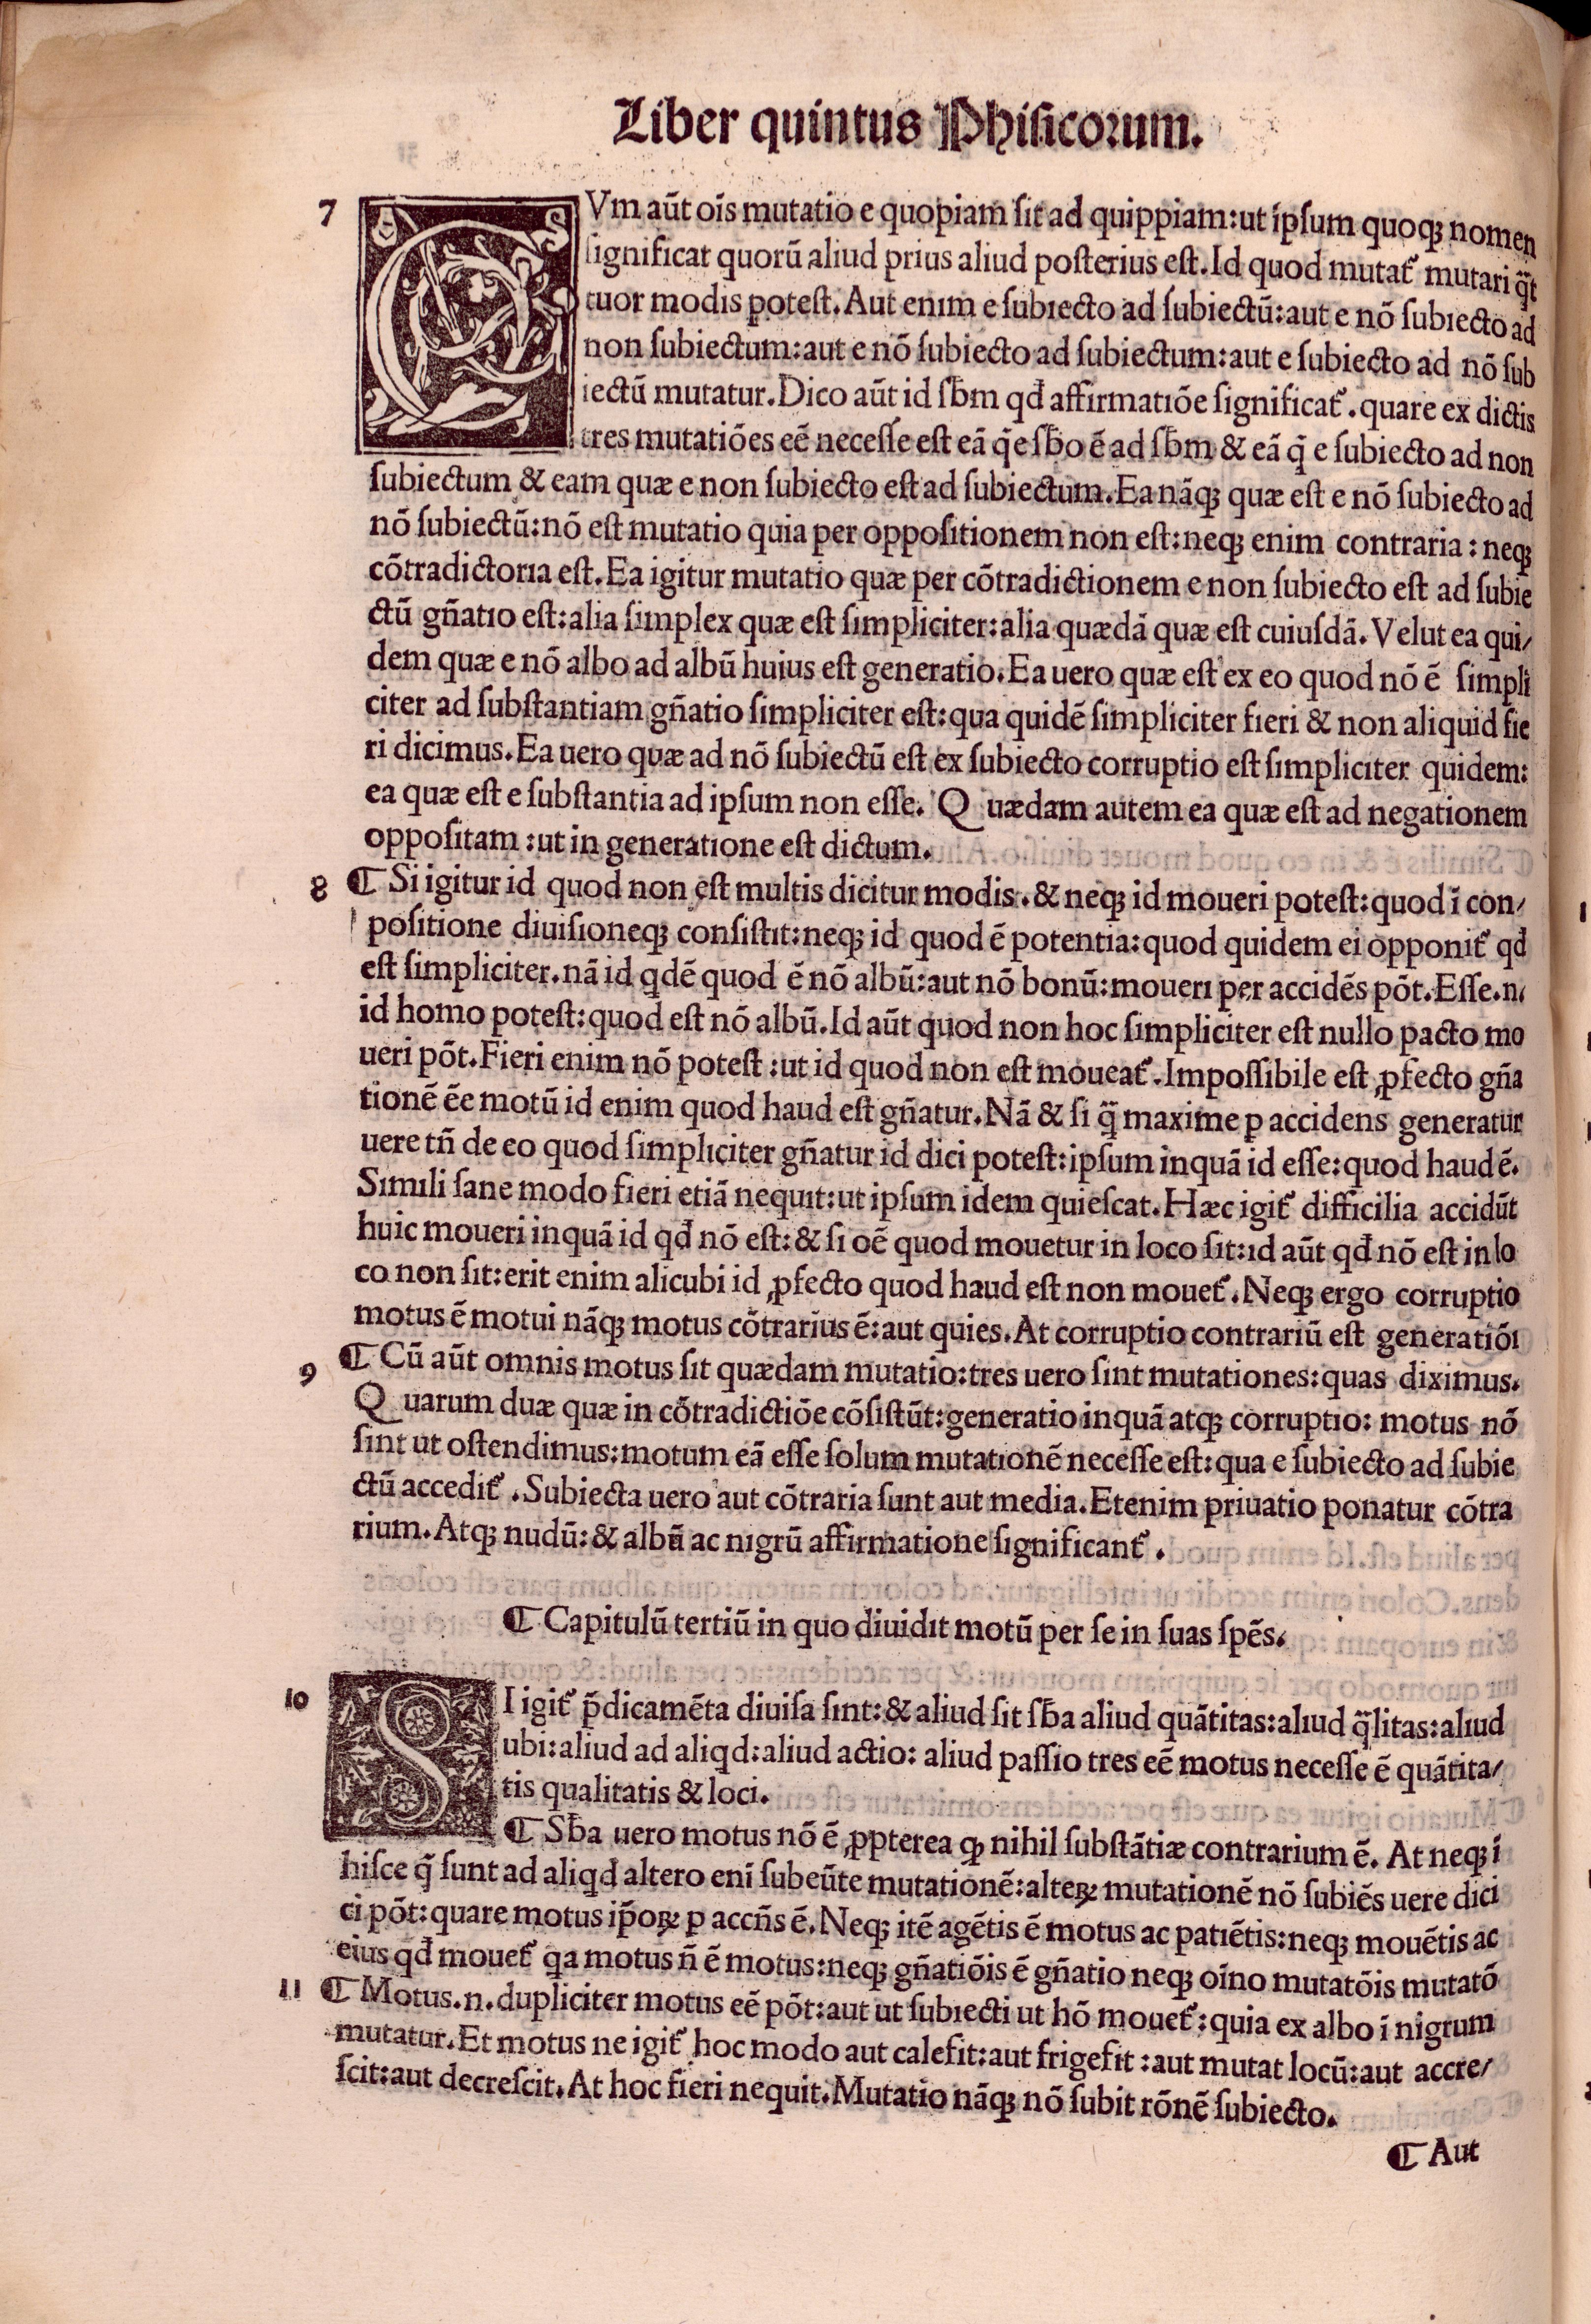 Liber quintus Phisicorum.
7
CVm aũt oĩs mutatio e quopiam sit ad quippiam:ut ipsum quoqꝫ nomen
significat quorũ aliud prius aliud posterius est.Id quod mutat᷒ mutari q̃t
tuor modis potest.Aut enim e subiecto ad subiectũ:aut e nõ subiecto ad
non subiectum:aut e nõ subiecto ad subiectum:aut e subiecto ad nõ sub
iectũ mutatur.Dico aũt id sƀm qđ affirmatiõe significat᷒.quare ex dictis
tres mutatiões eẽ necesse est eã q̃ e sƀo ẽ ad sƀm & eã q̃ e subiecto ad non
subiectum & eam quæ e non subiecto est ad subiectum.Ea nãqꝫ quæ est e nõ subiecto ad
nõ subiectũ:nõ est mutatio quia per oppositionem non est:neqꝫ enim contraria:neqꝫ
cõtradictoria est.Ea igitur mutatio quæ per cõtradictionem e non subiecto est ad subie
ctũ gñatio est:alia simplex quæ est simpliciter:alia quædã quæ est cuiusdã.Velut ea qui/
dem quæ e nõ albo ad albũ huius est generatio.Ea uero quæ est ex eo quod nõ ẽ simpli
citer ad substantiam gñatio simpliciter est:qua quidẽ simpliciter fieri & non aliquid fie
ri dicimus.Ea uero quæ ad nõ subiectũ est ex subiecto corruptio est simpliciter quidem:
ea quæ est e substantia ad ipsum non esse. Quædam autem ea quæ est ad negationem
oppositam:ut in generatione est dictum.
8
¶ Si igitur id quod non est multis dicitur modis.& neqꝫ id moueri potest:quod ĩ con/
positione diuisioneqꝫ consistit:neqꝫ id quod ẽ potentia:quod quidem ei opponit᷒ qđ
est simpliciter.nã id qdẽ quod ẽ nõ albũ:aut nõ bonũ:moueri per accidẽs põt.Esse.n.
id homo potest:quod est nõ albũ.Id aũt quod non hoc simpliciter est nullo pacto mo
ueri põt.Fieri enim nõ potest:ut id quod non est moueat᷒.Impossibile est ꝓfecto gña
tionẽ ẽe motũ id enim quod haud est gñatur.Nã & si q̃ maxime ꝑ accidens generatur
uere tñ de eo quod simpliciter gñatur id dici potest:ipsum inquã id esse:quod haud ẽ.
Simili sane modo fieri etiã nequit:ut ipsum idem quiescat.Hæc igit᷒ difficilia accidũt
huic moueri inquã id qđ nõ est:& si oẽ quod mouetur in loco sit:id aũt qđ nõ est in lo
co non sit:erit enim alicubi id ꝓfecto quod haud est non mouet᷒.Neqꝫ ergo corruptio
motus ẽ motui nãqꝫ motus cõtrarius ẽ:aut quies.At corruptio contrariũ est generatiõi
9
¶ Cũ aũt omnis motus sit quædam mutatio:tres uero sint mutationes:quas diximus.
Quarum duæ quæ in cõtradictiõe cõsistũt:generatio inquã atqꝫ corruptio: motus nõ
sint ut ostendimus:motum eã esse solum mutationẽ necesse est:qua e subiecto ad subie
ctũ accedit᷒.Subiecta uero aut cõtraria sunt aut media.Etenim priuatio ponatur cõtra
rium.Atqꝫ nudũ:& albũ ac nigrũ affirmatione significant᷒.
¶ Capitulũ tertiũ in quo diuidit motũ per se in suas spẽs.
10
SI igit᷒ p̃dicamẽta diuisa sint:& aliud sit sƀa aliud quãtitas:aliud q̃litas:aliud
ubi:aliud ad aliqd:aliud actio: aliud passio tres eẽ motus necesse ẽ quãtita/
tis qualitatis & loci.
¶ Sƀa uero motus nõ ẽ ꝓpterea qꝫ nihil substãtiæ contrarium ẽ. At neqꝫ ĩ
hisce q̃ sunt ad aliqđ altero enĩ subeũte mutationẽ:alteꝝ mutationẽ nõ subiẽs uere dici
ci põt:quare motus ip̃oꝝ ꝑ accñs ẽ.Neqꝫ itẽ agẽtis ẽ motus ac patiẽtis:neqꝫ mouẽtis ac
eius qđ mouet᷒ qa motus ñ ẽ motus:neqꝫ gñatiõis ẽ gñatio neqꝫ oĩno mutatõis mutatõ
11
¶ Motus.n.dupliciter motus eẽ põt:aut ut subiecti ut hõ mouet᷒:quia ex albo ĩ nigrum
mutatur.Et motus ne igit᷒ hoc modo aut calefit:aut frigefit:aut mutat locũ:aut accre/
scit:aut decrescit.At hoc fieri nequit.Mutatio nãqꝫ nõ subit rõnẽ subiecto.
¶ Aut